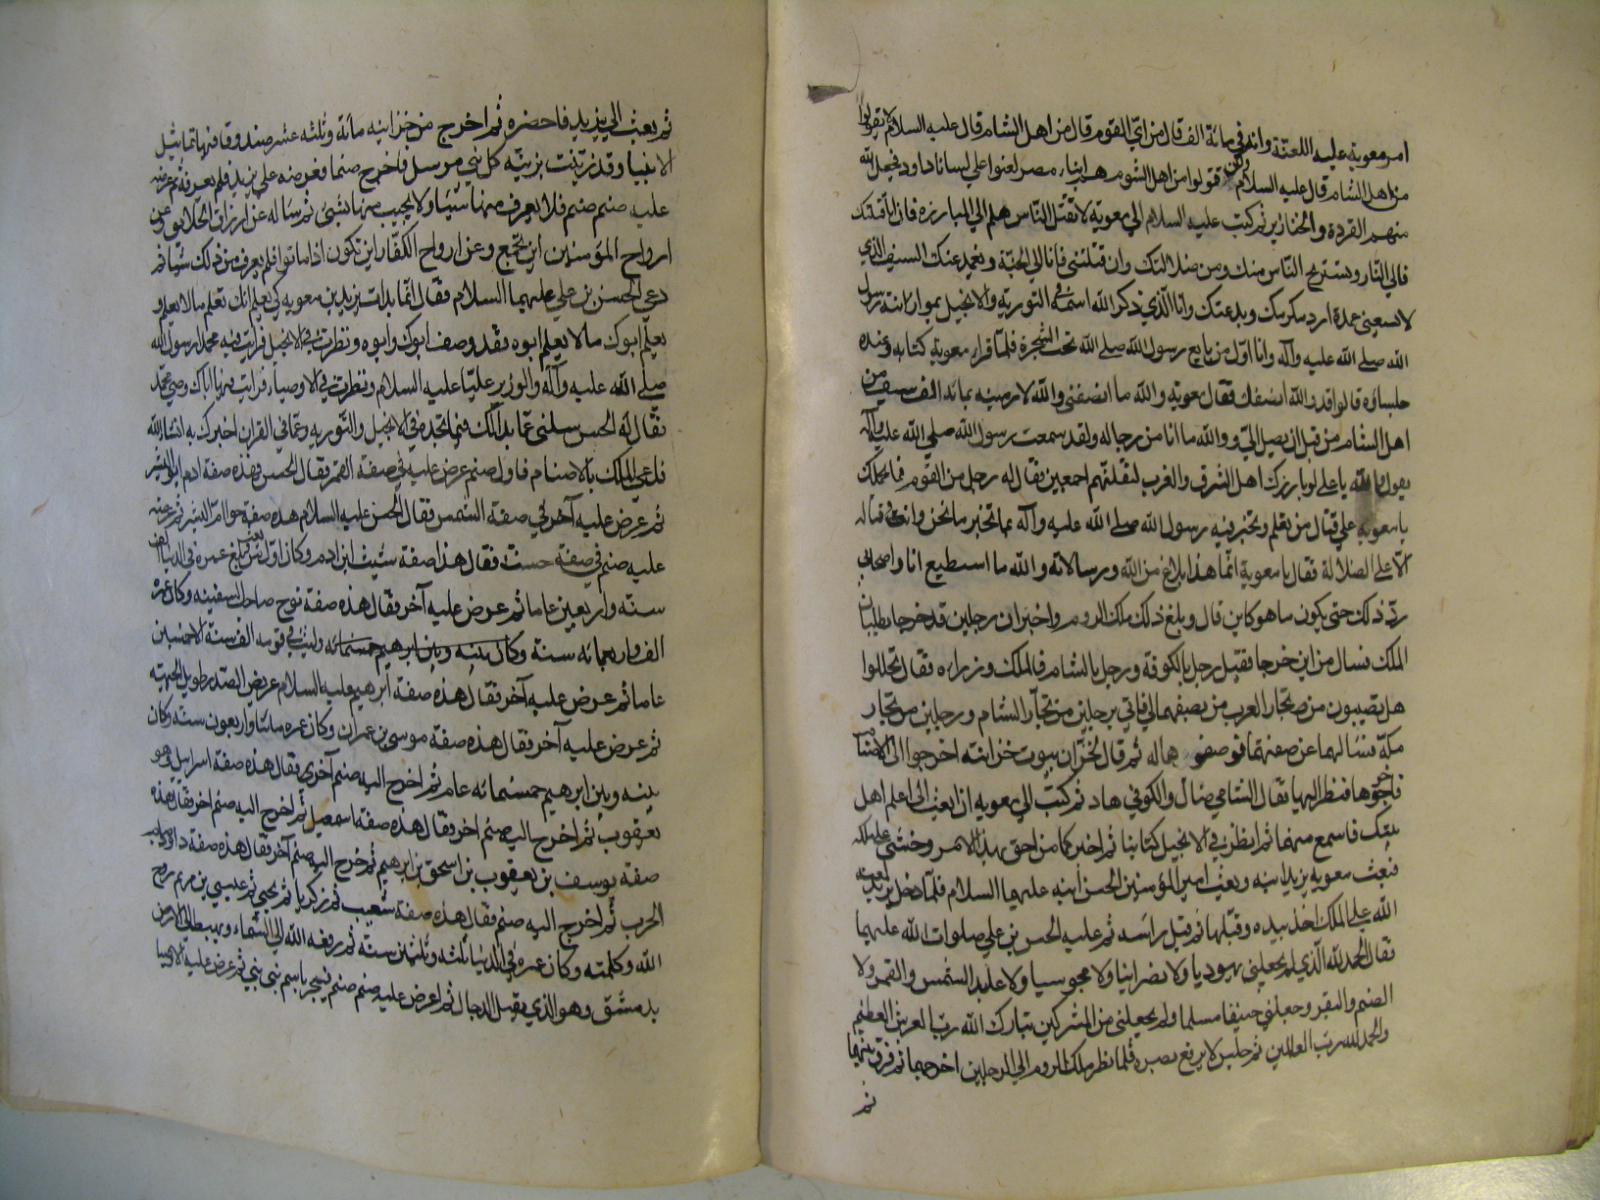 امر معوية عليه اللعنة وانه في مائة الف قال من اي القوم قال من اهل الشام قال عليه السلام لا تقولوا
من اهل الشام قال عليه السلام ولكن قولوا من اهل الشوم هم ابناء مصر لعنوا على لسان داود فجعل الله
منهم القردة والخنازير ثم كتب عليه السلام الى معوية لا تقتل الناس هلم الى المبارزة فان انا قتلتك
فالى النار وتستريح الناس منك ومن ضلالتك وان قتلتني فانا الى الجنة ويغمد عنك السيف الذي
لا يسعني غمده ارد مكرك وبدعتك وانا الذي ذكر الله اسمه في التورية والانجيل بموازرة رسول
الله صلى الله عليه وآله وانا اول من بايع رسول الله صلى الله تحت الشجرة فلما قرأ معوية كتابه وعنده
جلساؤه قالوا قد والله انصفك فقال معوية والله ما انصفني والله لارمينه بمائة الف سيف من
اهل الشام من قبل ان يصل الي والله ما انا من رجاله ولقد سمعت رسول الله صلى الله عليه وآله
يقول والله يا علي لو بارزك اهل الشرق والغرب لقتلتهم اجمعين فقال له رجل من القوم فما يحملك
يا معوية على قتال من تعلم وتخبر فيه رسول الله صلى الله عليه وآله عما تخبر ما نحن وانت في قتاله
الا على الضلالة فقال يا معوية انما هذا بلاغ من الله ورسالاته والله ما استطيع انا واصحابي
رد ذلك حتى يكون ما هو كاين قال وبلغ ذلك ملك الروم واخبر ان رجلين قد خرجا يطلبان
الملك فسال من اين خرجا فقيل رجل بالكوفة ورجل بالشام فالملك وزراءه فقال تخللوا
هل تصيبون من تجار العرب من يصفهما لي فاتي برجلين من تجار الشام ورجلين من تجار
مكة فسالهما عن صفتهما فوصفوهما له ثم قال لخزان بيوت خزائنه اخرجوا الي الاصنام
فاخرجوها فنظر اليها فقال الشامي ضال والكوفي هاد ثم كتب الى معوية ان ابعث الي اعلم اهل
بيتك فاسمع منهما ثم انظر في الانجيل كتابنا ثم اخبركما من احق بهذا الامر وخشي على ملكه
فبعث معوية يزيد ابنه وبعث امير المؤمنين الحسن ابنه عليهما السلام فلما دخل يزيد لعنه
الله على الملك اخذ بيده وقبلها ثم قبل راسه ثم عليه الحسن بن علي صلوات الله عليهما
فقال الحمد لله الذي لم يجعلني يهوديا ولا نصرانيا ولا مجوسيا ولا عابد الشمس والقمر ولا
الصنم والبقر وجعلني حنيفا مسلما ولم يجعلني من المشركين تبارك الله رب العرش العظيم
والحمد لله رب العالمين ثم جلس لا يرفع بصره فلما نظر ملك الروم الى الرجلين اخرجهما ثم فرق بينهما
ثم
ثم بعث الى يزيد فاحضره ثم اخرج من خزاينه مائة وثلثه عشر صندوقا فيها تماثيل
الانبيا وقد زينت بزينة كل نبي مرسل فاخرج صنما فعرضه على يزيد فلم يعرفه ثم عرضه
عليه صنم صنم فلا يعرف منها شيئا ولا يجيب منها بشئ ثم ساله عن ارزاق الخلايق وعن
ارواح المؤمنين اين تجتمع وعن ارواح الكفار اين تكون اذا ماتوا فلم يعرف من ذلك شيئا ثم
دعي الحسن بن علي عليهما السلام فقال انما بدات يزيد بن معويه كي يعلم انك تعلم ما لا يعلم و
يعلم ابوك ما لا يعلم ابوه فقد وصف ابوك وابوه ونظرت في الانجيل فرايت فيه محمدا رسول الله
صلى الله عليه وآله والوزير عليا عليه السلام ونظرت في الاوصياء فرايت فيها اباك وصي محمد
فقال له الحسن سلني عما بدا لك فيما تجده في الانجيل والتوريه وعما في القران اخبرك به انشاء الله
فدعي الملك بالاصنام فاول صنم عرض عليه في صفة القمر فقال الحسن فهذه صفة ادم ابو البشر
ثم عرض عليه آخر في صفة الشمس فقال الحسن عليه السلام هذه صفة حوا ام البشر ثم عرض
عليه صنم في صفة حسنة فقال هذا صفة شيث ابن ادم وكان اول من بعث وبلغ عمره في الدنيا الف
سنه واربعين عاما ثم عرض عليه آخر فقال هذه صفة نوح صاحب السفينه وكان عمره
الف واربعمائه سنة وكان بينه وبين ابرهيم خمسمائه ولبث في قومه الف سنة الا خمسين
عاما ثم عرض عليه آخر فقال هذه صفة ابرهيم عليه السلام عريض الصدر طويل الجبهة
ثم عرض عليه آخر فقال هذه صفة موسى بن عمران وكان عمره مائتا واربعون سنه وكان
بينه وبين ابرهيم خمسمائه عام ثم اخرج اليه صنم آخر فقال هذه صفة اسرايل وهو
يعقوب ثم اخرج اليه صنم اخر فقال هذه صفة اسمعيل ثم اخرج اليه صنم اخر فقال هذه
صفة يوسف بن يعقوب بن اسحق بن ابرهيم ثم اخرج اليه صنم آخر فقال هذه صفة داود صاحب
الحرب ثم اخرج اليه صنم فقال هذه صفة شعيب ثم زكريا ثم يحيي ثم عيسي بن مريم روح
الله وكلمته وكان عمره في الدنيا ثلثه وثلثين سنة ثم رفعه الله الى السماء ويهبط الى الارض
بدمشق وهو الذي يقتل الدجال ثم عرض عليه صنم صنم فيخبر باسم نبي نبي ثم عرض عليه الاوصيا